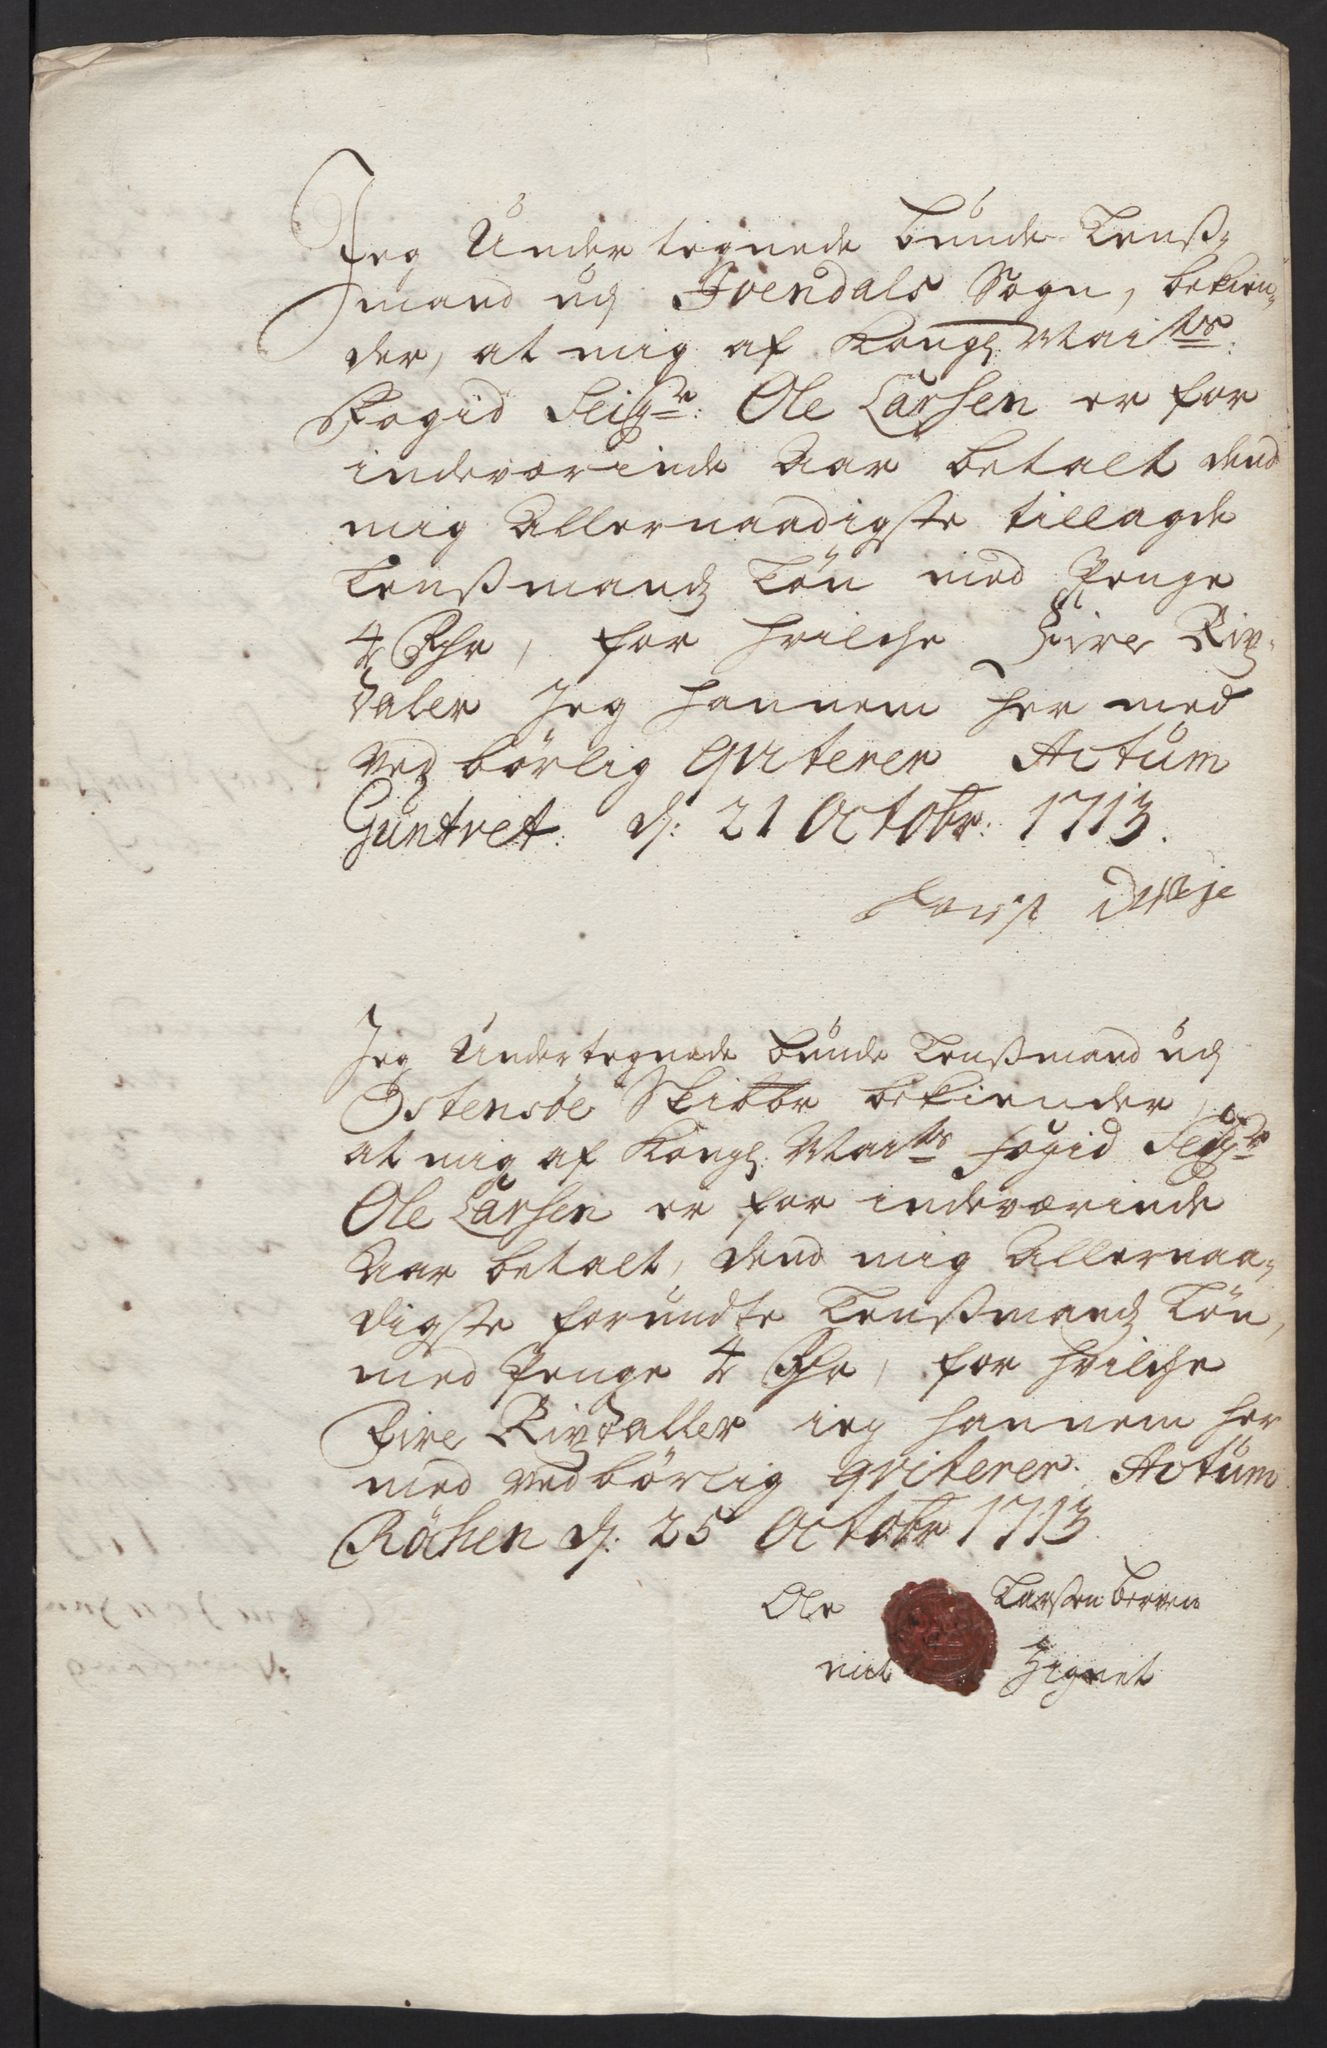 Jeg Under tegnede bunde Lenß-
mand udj Qvendals Sogn, bekien-
der, at mig af Kongl: Maits:
Fogid Seigr: Ole Larsen er for
indeværinde Aar betalt dend
mig Allernaadigste tillagde
Lenßmandz Løn med Penge
4 Rdr, for hvilche Fire Rix-
daler Jeg hannem her med
ved børlig qviterer Actum
Guntvet: d: 21 Octobr: 1713.
Jeg Undertegnede bunde Lenßmand udj
Østensøe Skibbr bekiender,
at mig af Kongl: Maits Fogid Seigr
Ole Larsen er for indeværinde
Aar betalt, dend mig Allernaa-
digste forundte Lenßmandz Løn,
med Penge 4 Rdr, for hvilche
Fire Rixdaller ieg hannem her
med vedbørlig qviterer. Actum
d: 25 Octobr 1713
Ole Larßen Berven
mit Zignet